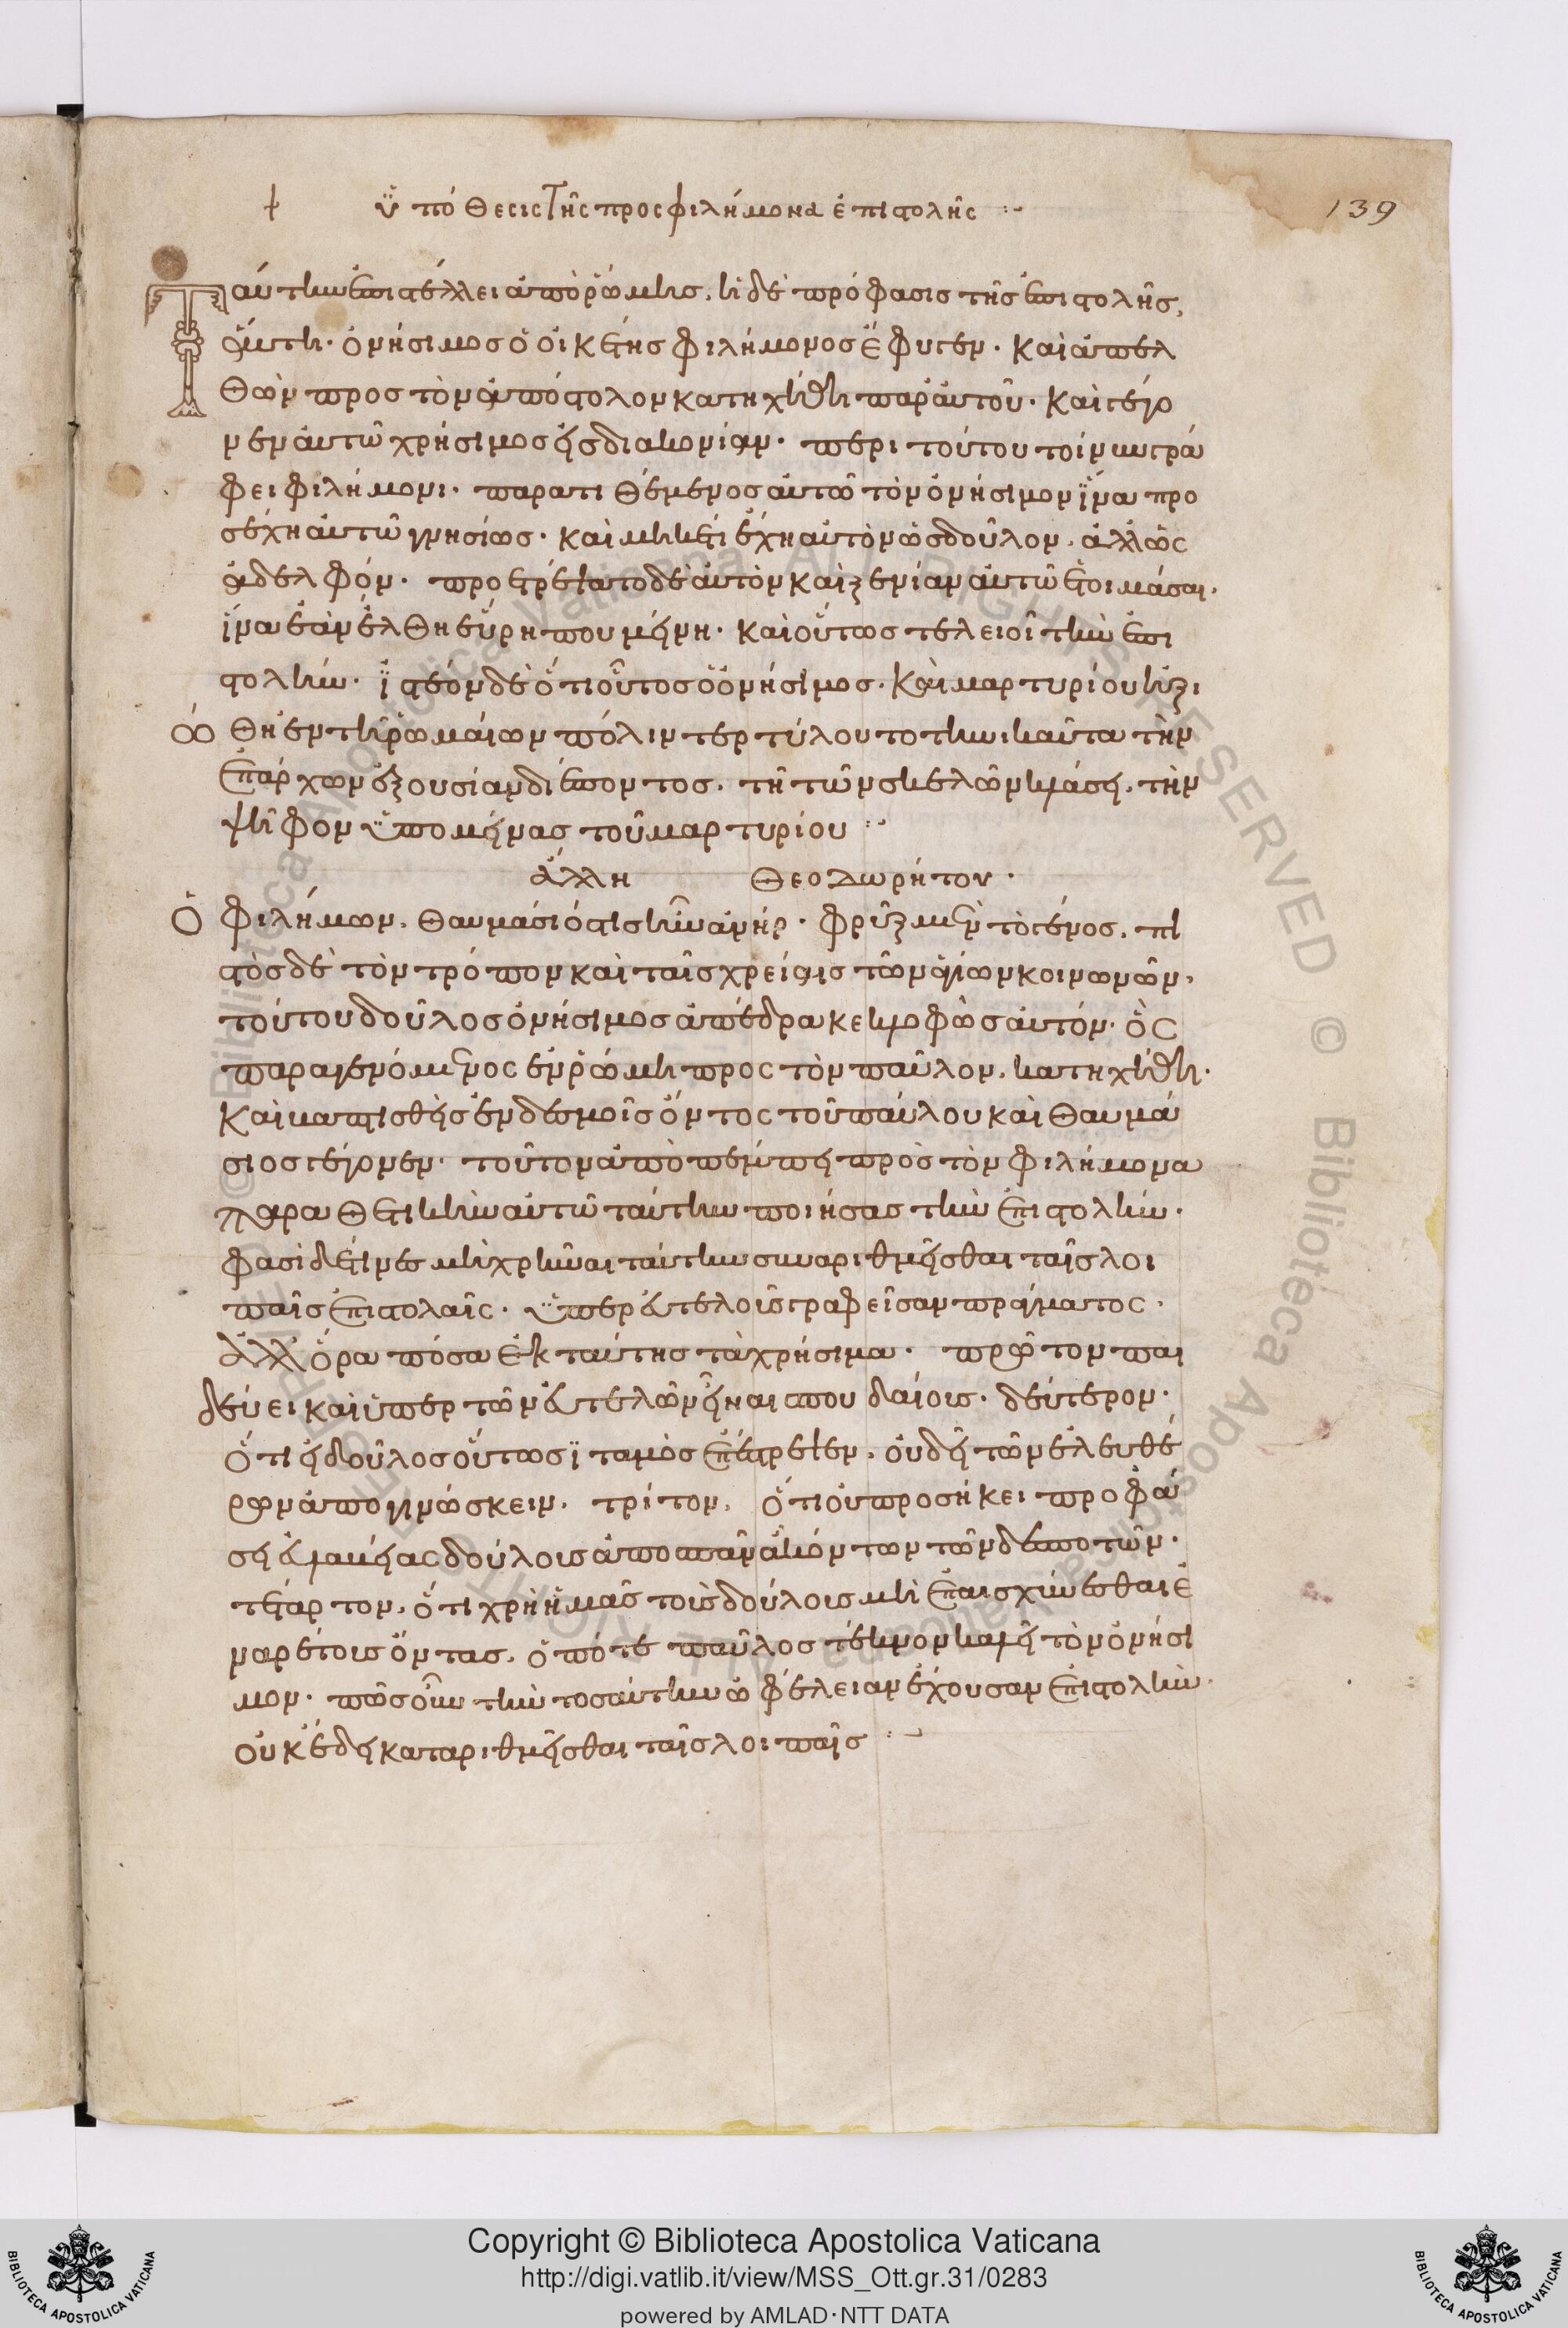 ὑπόθεσις τῆς προς φιλήμονα ἐπιστολῆς
139
Ταύτην ἐπιστέλλει ἀπὸ ῥώμης, ἡ δὲ πρόφασις τῆς ἐπιστολῆς,
αὕτη· ὀνήσιμος ὁ οἰκέτης φιλήμονος ἔφυγεν· καὶ ἀπελ
θὼν προς τὸν ἀπόστολον κατηχήθη παρ' αὐτοῦ· καὶ γέγο
νεν αὐτῶ χρήσιμος εἰς διακονίαν· περι τούτου τοίνυν γρά
φει φιλήμονι· παρατιθέμενος αὐτῶ τὸν ὀνήσιμον ἵνα προ
σέχη αὐτῶ γνησίως· καὶ μηκέτι ἔχη αὐτὸν ὡς δοῦλον, ἀλλ' ὡς
ἀδελφόν· προετρέψατο δὲ αὐτὸν καὶ ξενίαν αὐτῶ ἑτοιμάσαι·
ἵνα ἐὰν ἔλθη εὕρη που μένη· καὶ οὕτως τελειοῖ τὴν ἐπι
στολήν· ἰστέον δὲ ὅτι οὗτος ὁ ὀνήσιμος· καὶ μαρτυρίου ἠξι
ώθη ἐν τῆ ῥωμαίων πόλιν τερτύλου τοτηνικαῦτα τὴν
ἐπάρχων ἐξουσίαν διέποντος, τῆ τῶν σκελῶν κλάσει, τὴν
ψῆφον ὑπομείνας τοῦ μαρτυρίου
ἄλλη Θεοδωρήτου·
Ὁ φιλήμων, θαυμάσιός τις ἦν ἀνήρ· φρὺξ μὲν τὸ γένος, πι
στὸς δὲ τὸν τρόπον καὶ ταῖς χρείαις τῶν ἁγίων κοινωνῶν,
τούτου δοῦλος ὀνήσιμος ἀπέδρα κεκλοφὼς αὐτόν· ὃς
παραγενόμενος ἐν ῥώμη προς τὸν παῦλον, κατηχήθη·
καὶ βαπτισθεὶς ἐν δεσμοῖς ὄντος τοῦ παύλου καὶ θαυμά
σιος γέγονεν· τοῦτον ἀποπέμπει πρὸς τὸν φιλήμονα
παραθετικὴν αὐτῶ ταύτην ποιήσας τὴν ἐπιστολήν·
φασὶ δέ τινες μὴ χρῆναι ταύτην συναριθμεῖσθαι ταῖς λοι
παῖς ἐπιστολαῖς· ὑπερ εὐτελοῦς γραφεῖσαν πράγματος·
Ἀλλ' ὅρα πόσα ἐκ ταύτης τὰ χρήσιμα· πρῶτον παι
δεύει καὶ ὑπερ τῶν εὐτελῶν εἶναι σπουδαίοις· δεύτερον·
Ὅτι εἰ δοῦλος οὕτως ἰταμὸς ἐπέστρεψεν, οὐδένα τῶν ἐλευθέ
ρων ἀπογινώσκειν· τρίτον, ὅτι οὐ προσήκει προφά
σει εὐλαβείας δούλους ἀποσπᾶν ἀκόντων τῶν δεσποτῶν·
τέταρτον, ὅτι χρὴ ἡμᾶς τοὺς δούλους μὴ ἐπαισχύνεσθαι ἐ
ναρέτους ὄντας, ὁπότε παῦλος τέκνον καλεῖ τὸν ὀνήσι
μον· πῶς οὖν τὴν τοσαύτην ὠφέλειαν ἔχουσαν ἐπιστολὴν
οὐκ ἔδει καταριθμεῖσθαι ταῖς λοιπαῖς
Copyright © Biblioteca Apostolica Vaticana
http://digi.vatlib.it/view/MSS_Ott.gr.31/0283
powered by AMLAD·NTT DATA